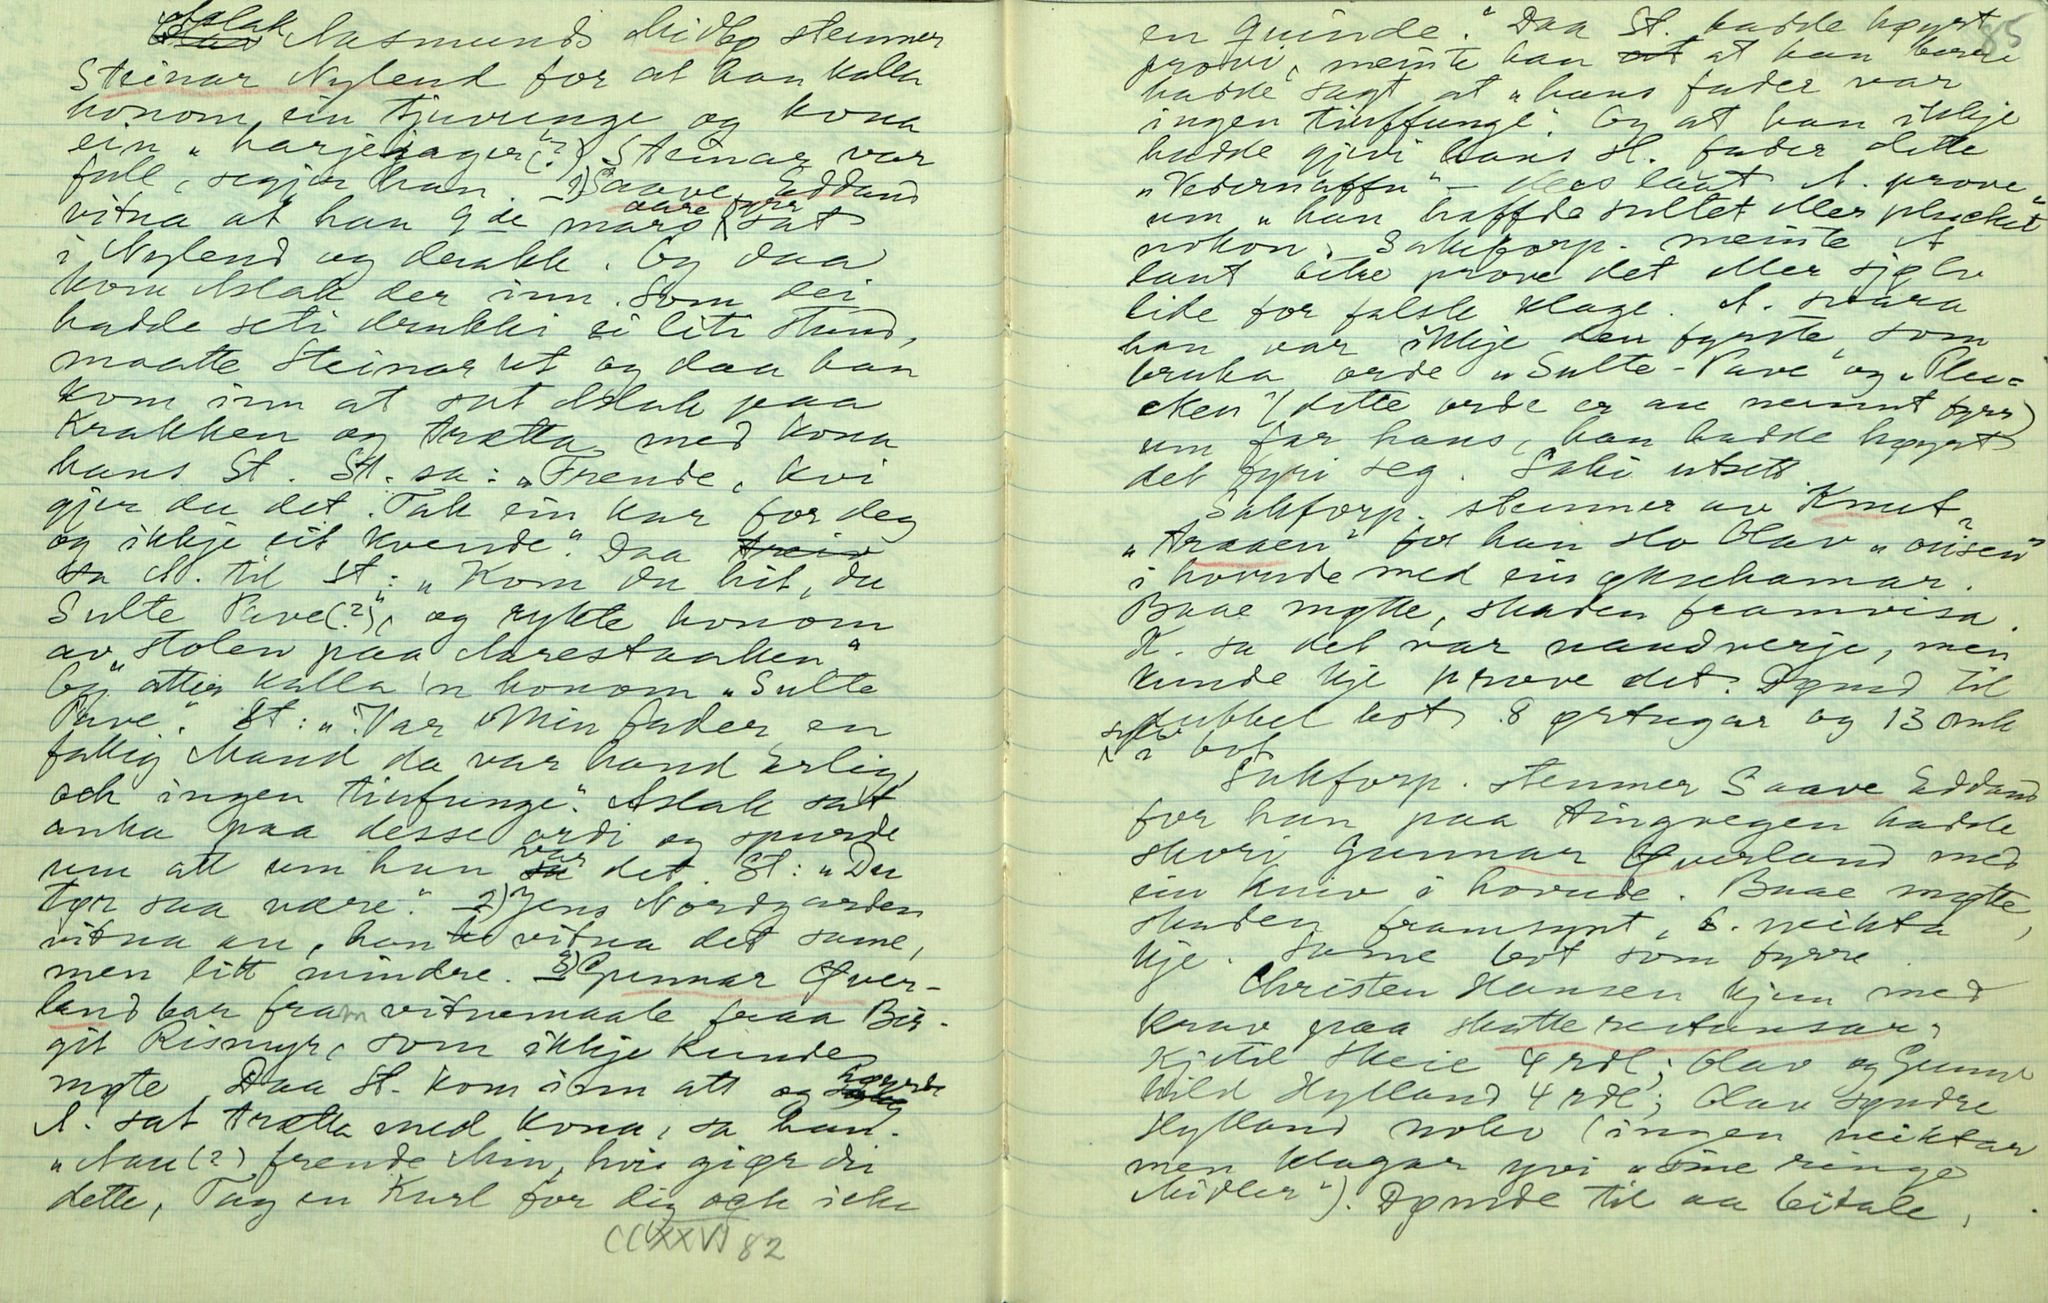 Aslak
Aasmunds Midbø stemner
Steinar Nylend for at han kalla
honom ein tjuvunge og kona
ein „harjejager(?)". Steinar var
full, segjer han. 1) Saave Eddand
vitna at han 9de mars aare fyrr sat
i Nylend og drakk. Og daa
kom Aslak der inn. Som dei
hadde seti drukki ei liti stund,
maatte Steinar ut og daa han
kom inn at sat Aslak paa
Krakken og trætta med kona
hans St. St. sa: „Frende, kvi
gjer du det. Tak ein kar for deg
og ikkje eit kvende." Daa
sa A. til St: „Kom du hit, du
Sulte Pave(?)", og rykte honom
av stolen paa Aarestaaken."
Og atter kalla 'n honom „Sulte
Pave". St: „Var Min fader en
fattig Mand da var hand Erlig
och ingen tiufunge". Aslak sat
anka paa desse ordi og spurde
um att um han var det. St: „Du
tør saa være." 2) Jens Nordgarden
vitna au, han vitna det same,
men litt mindre. 3) Gunnar Øver-
land bar fram vitnemaale fraa Bir-
git Rismyr, som ikkje kunde
møte. Daa St. kom inn att og høyrde
A. sat trætta med kona, sa han.
„Nau(?) frende Min, hvi giør du
dette, Tag en Karl for dig ogh icke
CCXXVI 82
85
en quinde." Daa St. hadde høyrt
provi, meinte han at han berre
hadde sagt at „hans fader var
ingen tiuffunge". Og at han ikkje
hadde gjevi hans St. fader dette
„Vedernaffn" – Mos laut A. prove
um „han haffde sultet eller plucket"
nokon. Sakforp. meinte A
laut bitre prove det eller sjølv
lide for falsk klage. A. svara
han var ikkje den fyrste, som
bruka orde „Sulte-Pave" og „Plu-
cken" (dette orde er au nemnt fyrr)
um far hans, han hadde høyrt
det fyri seg. Saki utsett.
Sakforp. stemner av Knut
„Araaen" for han slo Olav „oisen"
i hovude med ein øksehamar.
Baae møtte, skaden framvisa.
K. sa det var naudverje, men
kunde kje prove det. Dømd til
dubbel bot 8 ørtugar og 13 mk
sylv i bot
Sakforp. stemner Saave Eddand
for han paa tingvegen hadde
skori Gunnar Øverland med
ein kniv i hovude. Baae møtte,
skaden framsynt, S. neikta
kje. Same bot som fyrre.
Christen Hansen kjem med
krav paa skatterestansar,
Kjetil Skeie 4 rdl; Olav og Gunn-
hild Hylland 4 rdl; Olav Syndre
Hylland noko (ingen neiktar
men klagar yvi „sine ringe
Midler"). Dømde til aa beitale.